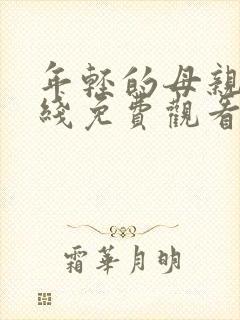 年轻的母親
綫免费觀看
霜華月明